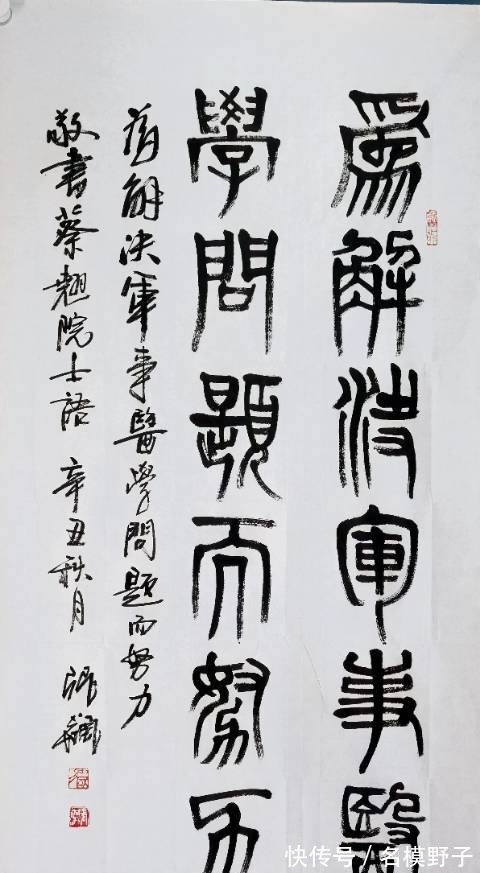 為解決軍事醫
學問題而努力
為解決軍事醫學問題而努力
敬書蔡翹院士語 辛丑秋月
快传号/名模野子